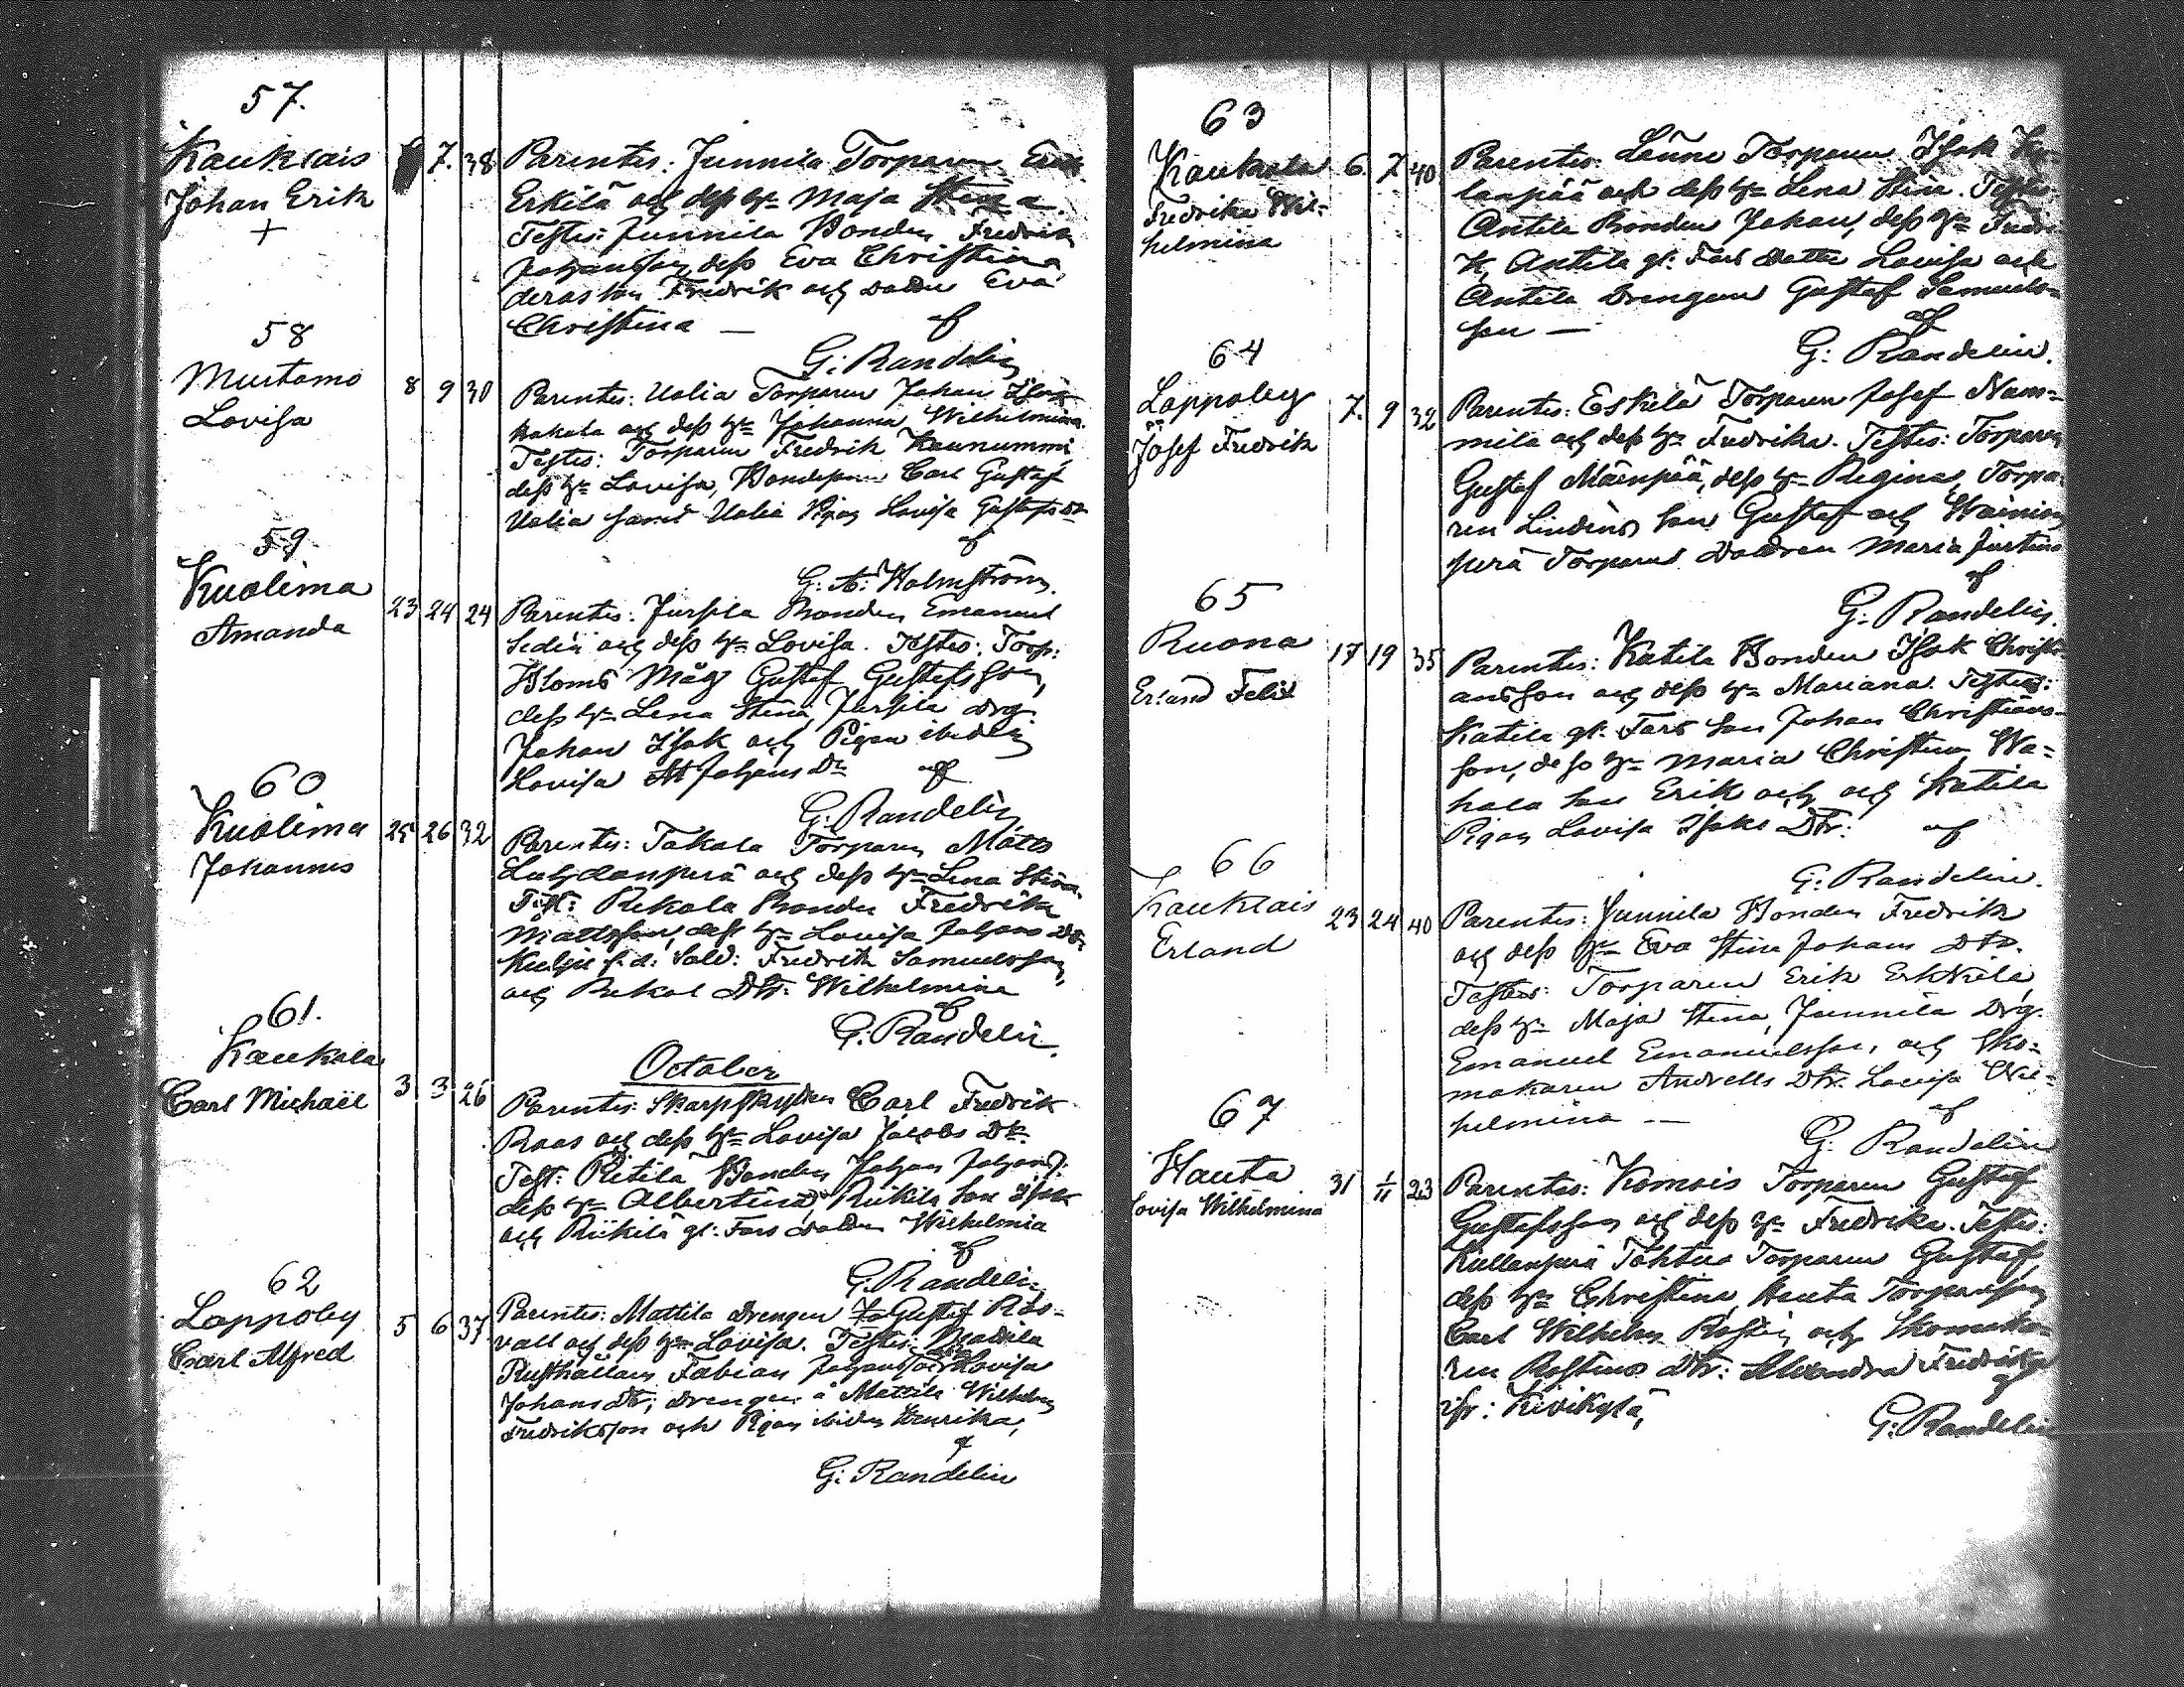 57.
Kauksais
Johan Erik
+
7. 38
Parentes: Junnila Torparen Erik
Erkilä och dess h. Maja Stina
Testes: Junnila Bonden Fredrik
Johansson, dess Eva Christina
deras son Fredrik och dottren Eva
Christina — af
G: Randelin
58
Murtamo
Lovisa
8 9 30
Parentes: Uolia Torparen Johan Isak
kakola och dess h. Johanna Wilhelmina
Testes: Torparen Fredrik Kaunummi,
dess h. Lovisa, Bondesonen Carl Gustaf
Uolia samt Uolia Pigan Lovisa Gustafs Dr
af
G: A: Holmström.
59
Kuolima
Amanda
23 24 24
Parentes: Jussila Bonden Emanuel
Sedin och dess h. Lovisa. Testes: Torp:
Bloms Måg Gustaf Gustafsson,
dess h. Lena Stina, Jussila drg.
Johan Isak och Pigan ibidem
Lovisa Johans Dr af
G: Randelin
60
Kuolima
Johannes
25 26 32
Parentes: Takala Torparen Matts
Luhdanperä och dess h. Lena Stina.
Test: Rekola Bonden Fredrik
Mattsson, dess h. Lovisa Johans Dr,
f.d. Sold: Fredrik Samuelsson,
och Rekol Dtr. Wilhelmina
af
G: Randelin.
61.
Kaukola
Carl Michaël
October
3 3 26
Parentes: Skarpskytten Carl Fredrik
Raas och dess h. Lovisa Jacobs Dr.
Test: Ritilä Bonden Johan Johans:
dess h. Albertina, Riikilä son Isak
och Riikilä gl: Fars dottren Wilhelmia
af
G: Randelin
62
Lappoby
Carl Alfred
5 6 37
Parentes: Mattila drengen Gustaf Ros-
vall och dess h. Lovisa. Testes:
Rusthållaren Fabian Johansson, Lovisa
Johans Dr, drengen å Mattila Wilhelm
Fredriksson och Pigan ibidem Henrika,
af
G: Randelin
63
Kaukola
Fredrika Wil-
helmina
6. 7 40
Parentes: Länne Torparen Isak
lanpää och dess h. Lena Stina. Testes
Antila Bonden Johan, dess h. Fredri-
k, Antila gl: Fars dotter Lovisa och
Antila Drengen Gustaf Samuels-
son — af
G: Randelin.
64
Lappoby
Josef Fredrik
7. 9 32
Parentes: Eskilä Torparen Josef Nam-
mila och dess h. Fredrika. Testes: Torparen
Gustaf Mäenpää, dess h. Regina, Torpa-
ren Lindéns son Gustaf och Wainion
perä Torparens Dottren Maria Justina
af
G: Randelin.
65
Ruona
Erland Felix
17 19 35
Parentes: Katila Bonden Isak Christi-
ansson och dess h. Mariana. Testes:
Katila gl: Fars son Johan Christians-
son, dess h. Maria Christina, Wa-
hala son Erik och och Katila
Pigan Lovisa Isaks Dtr: af
G: Randelin.
66
Kauksais
Erland
23 24 40
Parentes: Junnila Bonden Fredrik
och dess h. Eva Stina Johans Dtr.
Testes: Torparen Erik Erkkilä,
dess h. Maja Stina, Junnila Drg.
Emanuel Emanuelsson, och Sko-
makaren Andvells Dtr. Lovisa Wil-
helmina — af
G: Randelin
67
Hauta
Lovisa Wilhelmina
31 1/11 23
Parentes: Komois Torparen Gustaf
Gustafsson och dess h. Fredrika. Testes:
Kullanperä Torparen Gustaf,
dess h. Christina, Hauta Torparesson
Carl Wilhelm Rostin och Skomaka-
ren Rostins Dtr: Alexandra Fredrika
ifr: Kivikylä, af
G: Randelin